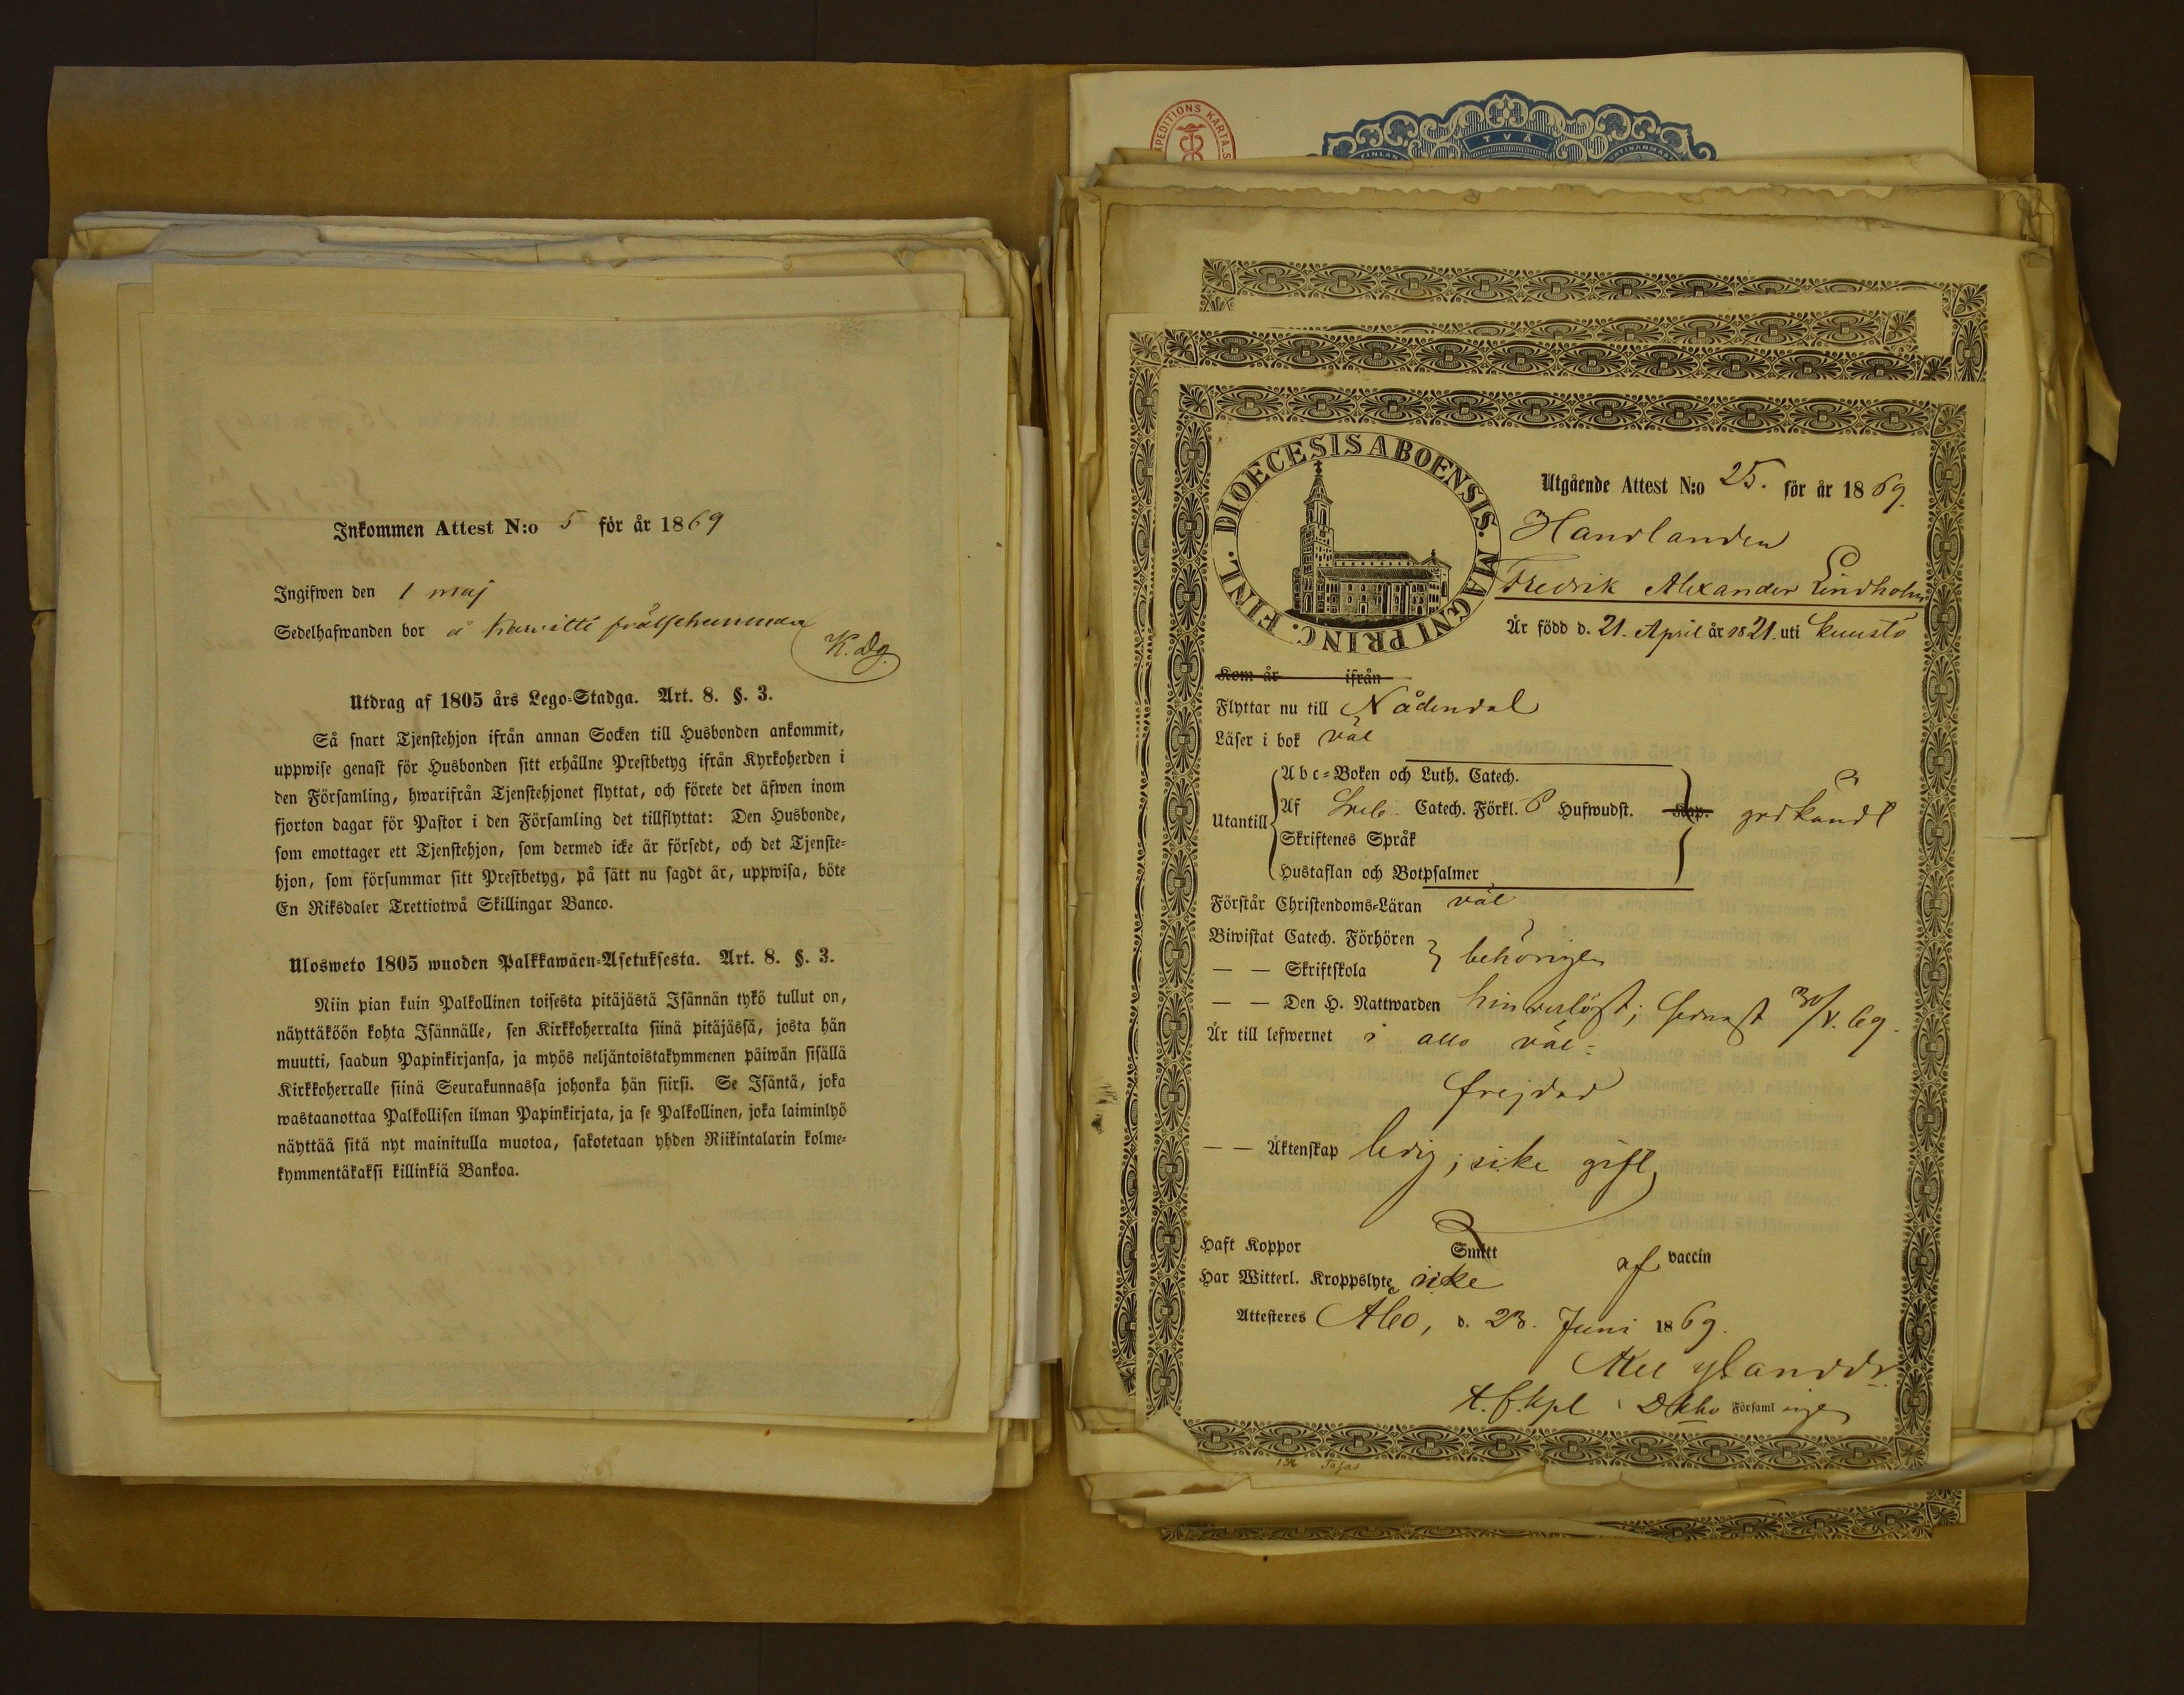 Inkommen Attest N:o 5 för år 1869
Ingifwen den 1 maj
Sedelhafwanden bor å
K. Dg.
Utdrag af 1805 års Lego-Stadga. Art. 8. §. 3.
Så snart Tjenstehjon ifrån annan Socken till Husbonden ankommit,
uppwise genast för Husbonden sitt erhållne Prestbetyg ifrån Kyrkoherden i
den Församling, hwarifrån Tjenstehjonet flyttat, och förete det äfwen inom
fjorton dagar för Pastor i den Församling det tillflyttat: Den Husbonde,
som emottager ett Tjenstehjon, som dermed icke är försedt, och det Tjenste-
hjon, som försummar sitt Prestbetyg, på sätt nu sagdt är, uppwisa, böte
En Riksdaler Trettiotwå Skillingar Banco.
Ulosweto 1805 wuoden Palkkawäen-Asetuksesta. Art. 8. §. 3.
Niin pian kuin Palkollinen toisesta pitäjästä Isännän tykö tullut on,
näyttäköön kohta Isännälle, sen Kirkkoherralta siinä pitäjässä, josta hän
muutti, saadun Papinkirjansa, ja myös neljäntoistakymmenen päiwän sisällä
Kirkkoherralle siinä Seurakunnassa johonka hän siirsi. Se Isäntä, joka
wastaanottaa Palkollisen ilman Papinkirjata, ja se Palkollinen, joka laiminlyö
näyttää sitä nyt mainitulla muotoa, sakotetaan yhden Riikintalarin kolme-
kymmentäkaksi killinkiä Bankoa.
EXPEDITIONS KARTA.S
TVÅ
DIOECESIS ABOENSIS. MAGNI PRINC. FINL.
Utgående Attest N:o 25. för år 1869.
Handlanden
Fredrik Alexander Lindholm
Är född d. 21. April år 1821. uti Kuustö
Kom år ifrån
Flyttar nu till Nådendal
Läser i bok väl
Utantill
Abc-Boken och Luth. Catech.
Af Sveb. Catech. Förkl. 6 Hufwudst. Kap. godkändt
Skriftenes Språk
Hustaflan och Botpsalmer
Förstår Christendoms-Läran väl
Biwistat Catech. Förhören
— — Skriftskola behörigen
— — Den H. Nattwarden hinderlöst; senast 30/V. 69.
Är till lefwernet i allo väl-
frejdad
— — Äktenskap ledig; icke gift
Haft Koppor Smitt af vaccin
Har Witterl. Kroppslyte icke
Attesteres Åbo, d. 23. Juni 1869.
t.f. kpl i Församlingen